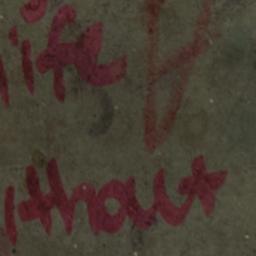 life
ithout